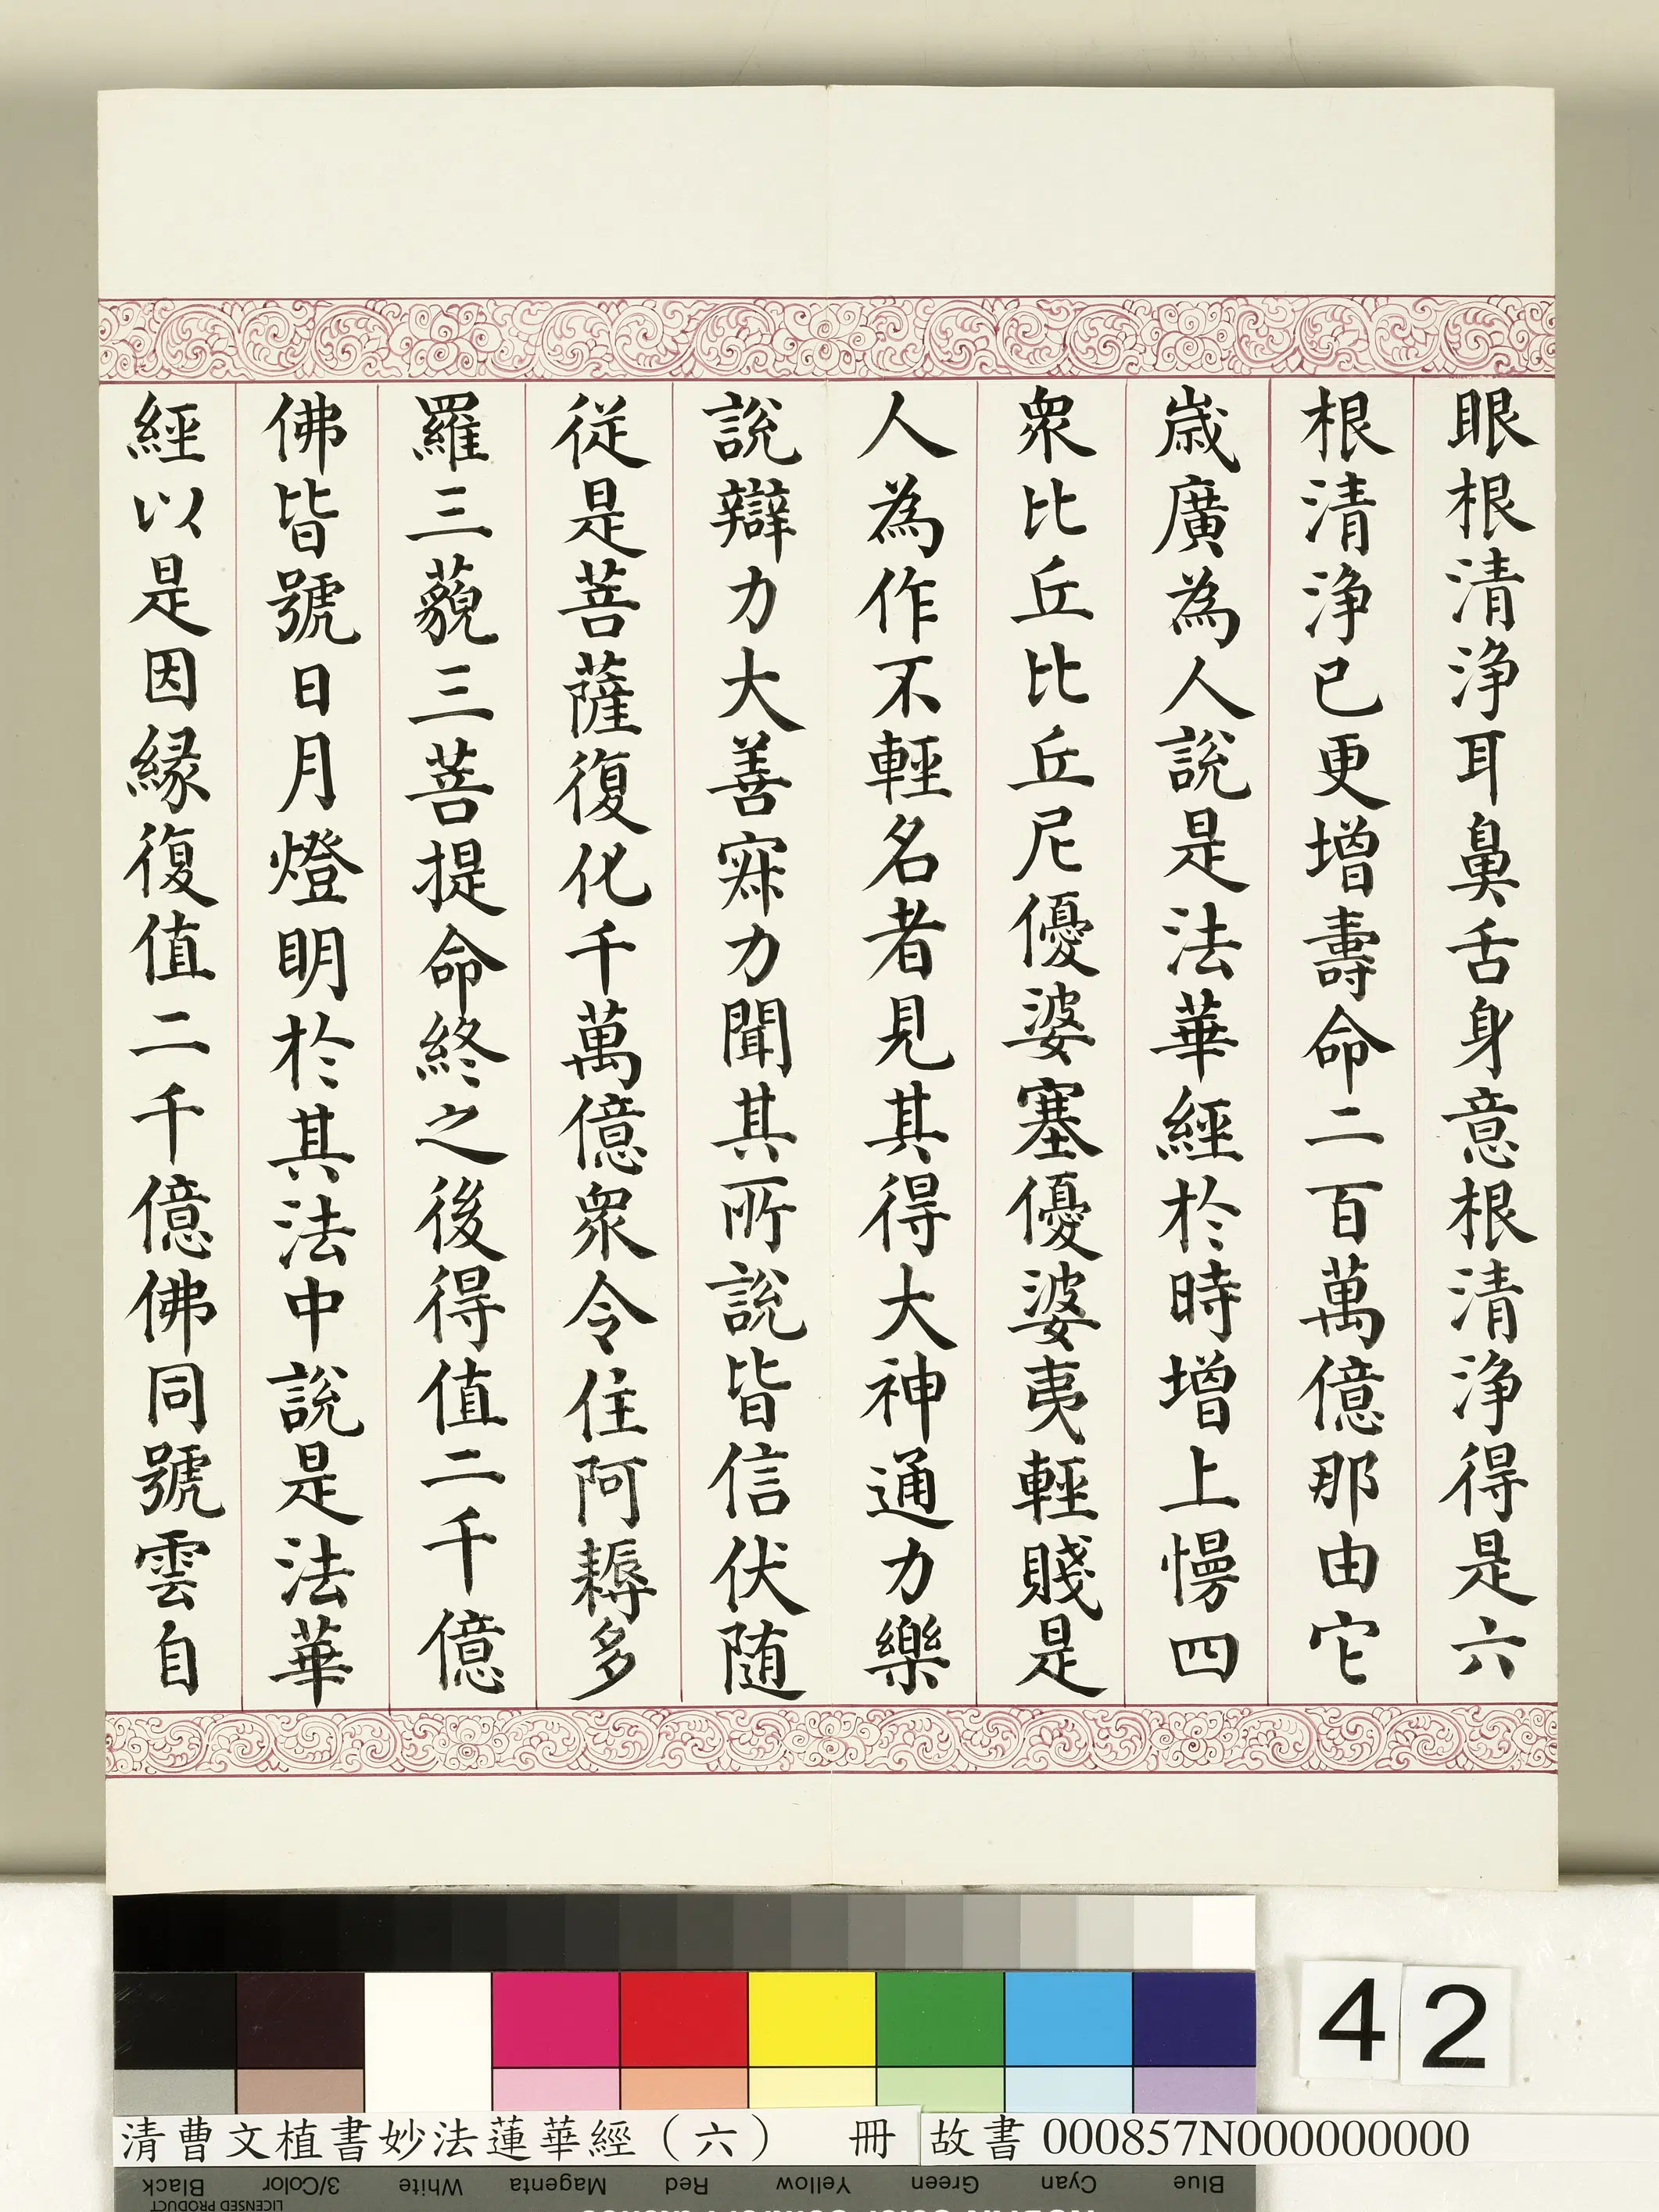 眼根清淨耳鼻舌身意根清淨得是六
根清淨已更增壽命二百萬億那由它
歲廣為人說是法華經於時增上慢四
眾比丘比丘尼優婆塞優婆夷輕賤是
人為作不輕名者見其得大神通力樂
說辯力大善寂力聞其所說皆信伏随
從是菩薩復化千萬億眾令住阿耨多
羅三藐三菩提命終之後得值二千億
佛皆號日月燈明於其法中說是法華
經以是因緣復值二千億佛同號雲自
42
清曹文植書妙法蓮華經（六） 冊 故書000857N000000000
Black 3/Color White Magenta Red Yellow Green Cyan Blue
LICENSED PRODUCT